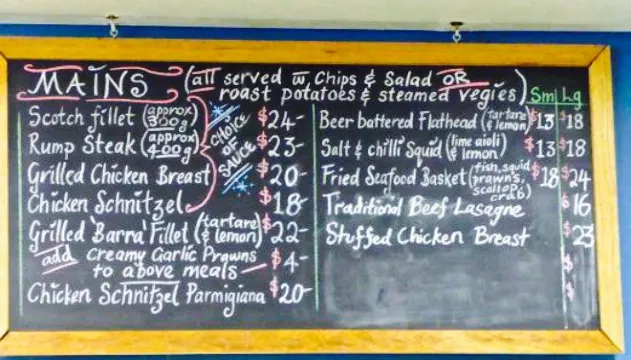 MAINS (all served w Chips & Salad OR
roast potatoes & steamed vegies)
Scotch fillet (approx 300g) $24-
Rump Steak (approx 400g) $23-
Grilled Chicken Breast $20-
Chicken Schnitzel $18-
CHOICE OF SAUCE
Grilled 'Barra' Fillet (tartare & lemon) $22-
add creamy Garlic Prawns
to above meals - $4-
Chicken Schnitzel Parmigiana $20-
Sm Lg
Beer battered Flathead (tartare & lemon) $13 $18
Salt & chilli Squid (lime aioli & lemon) $13 $18
Fried Seafood Basket (fish, squid, prawns, scallop, crab) $18 $24
Traditional Beef Lasagne $16
Stuffed Chicken Breast $23
$
$